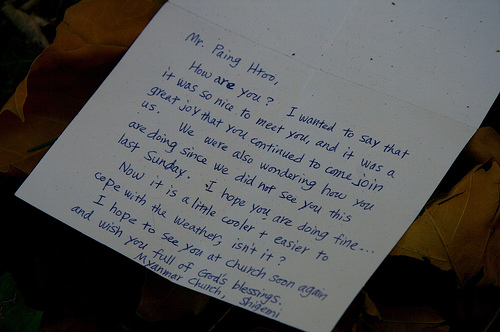 Mr. Paing Htoo,
How are you? I wanted to say that
it was so nice to meet you, and it was a
great joy that you continued to come join
us. We were also wondering how you
are doing since we did not see you this
last Sunday. I hope you are doing fine...
Now it is a little cooler + easier to
cope with the weather, isn't it?
I hope to see you at church soon again
and wish you full of God's blessings.
Myanmar Church, Shigemi